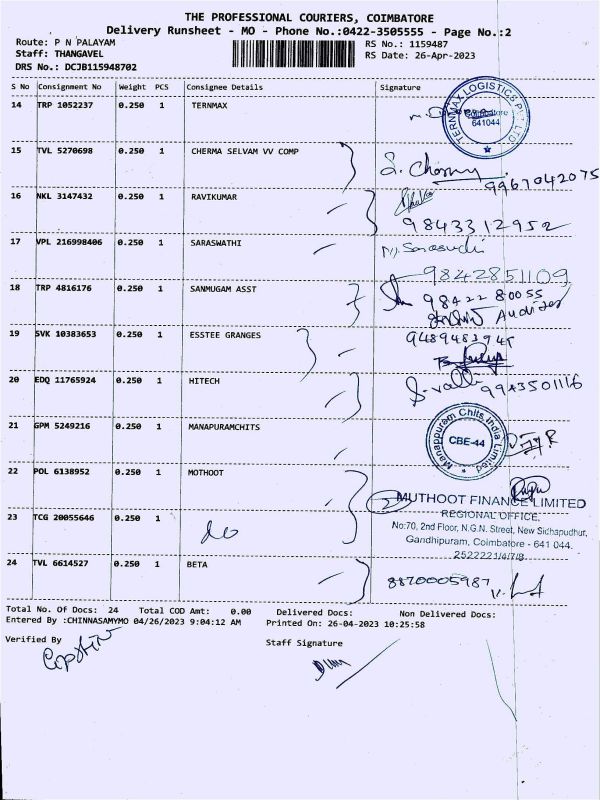 THE PROFESSIONAL COURIERS, COIMBATORE
Delivery Runsheet - MO - Phone No.:0422-3505555 - Page No.:2
Route: P N PALAYAM
RS No.: 1159487
Staff: THANGAVEL
RS Date: 26-Apr-2023
DRS No.: DCJB115948702
S No Consignment No Weight PCS Consignee Details Signature
14 TRP 1052237 0.250 1 TERNMAX
TERNMAX LOGISTICS PVT LTD
Coimbatore
641044
15 TVL 5270698 0.250 1 CHERMA SELVAM VV COMP
9967042075
16 NKL 3147432 0.250 1 RAVIKUMAR
9843312952
17 VPL 216998406 0.250 1 SARASWATHI
9842851109
18 TRP 4816176 0.250 1 SANMUGAM ASST
98422 80055
Auditor
19 SVK 10383653 0.250 1 ESSTEE GRANGES
20 EDQ 11765924 0.250 1 HITECH
9943501116
21 GPM 5249216 0.250 1 MANAPURAMCHITS
Manappuram Chits India Limited
CBE-44
22 POL 6138952 0.250 1 MOTHOOT
2
MUTHOOT FINANCE LIMITED
REGIONAL OFFICE,
No:70, 2nd Floor, N.G.N. Street, New Sidhapudhur,
Gandhipuram, Coimbatore - 641 044.
2522221/4/7/8
23 TCG 20055646 0.250 1 do
24 TVL 6614527 0.250 1 BETA
8870005987
Total No. Of Docs: 24 Total COD Amt: 0.00 Delivered Docs: Non Delivered Docs:
Entered By :CHINNASAMYMO 04/26/2023 9:04:12 AM Printed On: 26-04-2023 10:25:58
Verified By
Staff Signature